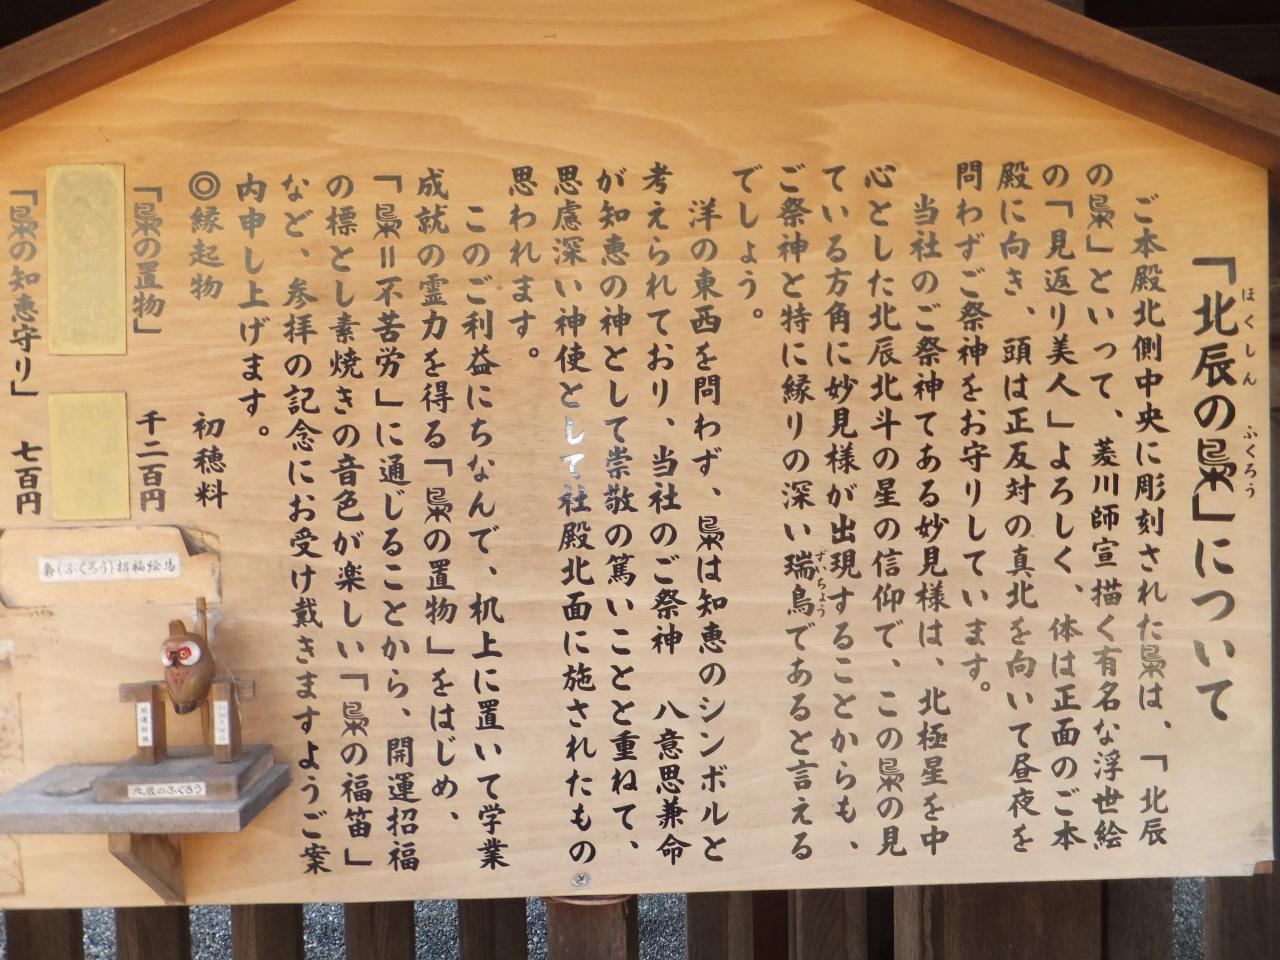 「北辰の梟」について
ほくしん ふくろう
ご本殿北側中央に彫刻された梟は、「北辰
の梟」といって、菱川師宣描く有名な浮世絵
の「見返り美人」よろしく、体は正面のご本
殿に向き、頭は正反対の真北を向いて昼夜を
問わずご祭神をお守りしています。
当社のご祭神てある妙見様は、北極星を中
心とした北辰北斗の星の信仰で、この梟の見
ている方角に妙見様が出現することからも、
ご祭神と特に縁りの深い瑞鳥であると言える
ずいちょう
でしょう。
洋の東西を問わず、梟は知恵のシンボルと
考えられており、当社のご祭神 八意思兼命
が知恵の神として崇敬の篤いことと重ねて、
思慮深い神使として社殿北面に施されたもの
思われます。
このご利益にちなんで、机上に置いて学業
成就の霊力を得る「梟の置物」をはじめ、
「梟=不苦労」に通じることから、開運招福
の標とし素焼きの音色が楽しい「梟の福笛」
など、参拝の記念にお受け戴きますようご案
内申し上げます。
◎縁起物 初穂料
「梟の置物」 千二百円
「梟の知恵守り」 七百円
梟(ふくろう)招福絵馬
北辰のふくろう